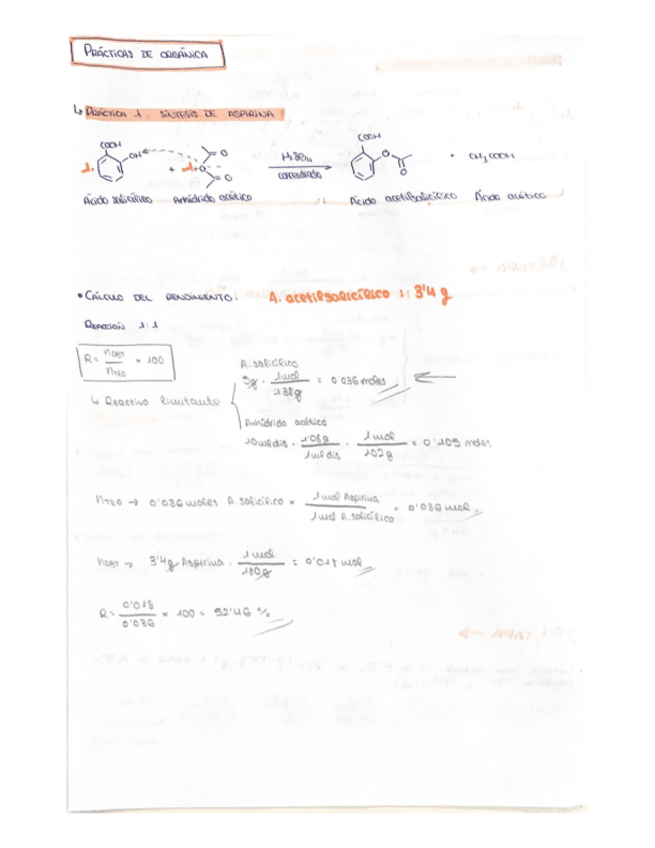 PRÁCTICAS DE ORGÁNICA
↳ PRÁCTICA 1: SÍNTESIS DE ASPIRINA
COOH OH 1. + 1. O O O H2SO4 concentrado COOH O O + CH3COOH
Ácido salicílico Anhídrido acético Ácido acetilsalicílico Ácido acético
• CÁLCULO DEL RENDIMIENTO: A. acetilsalicílico: 3'4 g
REACCIÓN 1:1
R = nOBT / nTEO × 100
↳ Reactivo limitante
A. salicílico
5g · 1mol / 138g = 0'036 moles ←
Anhídrido acético
10 ml dis · 1'08g / 1ml dis · 1mol / 102g = 0'105 moles
nTEO → 0'036 moles A salicílico × 1 mol Aspirina / 1 mol A. salicílico = 0'036 mol
nOBT → 3'4g Aspirina · 1 mol / 180g = 0'018 mol
R = 0'018 / 0'036 × 100 = 52'46 %